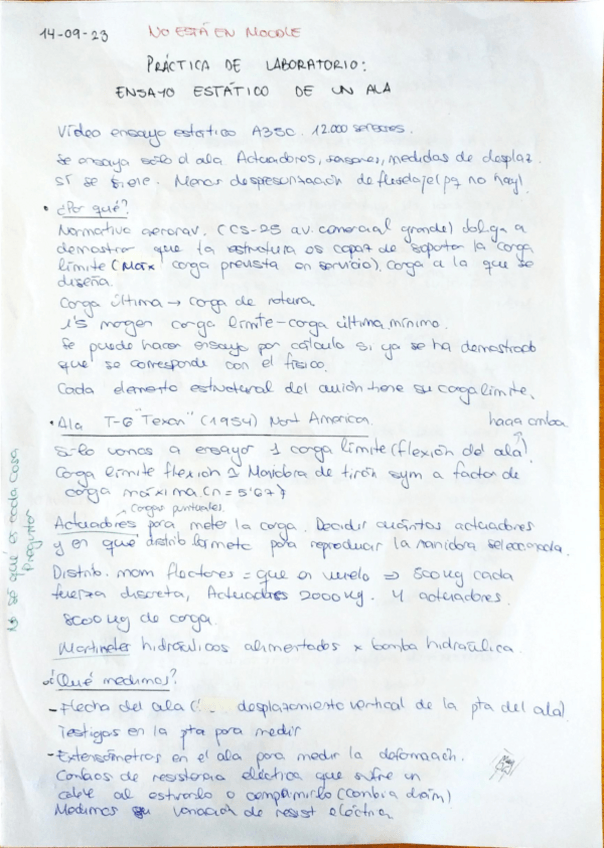 14-09-23 NO ESTÁ EN MOODLE
PRÁCTICA DE LABORATORIO:
ENSAYO ESTÁTICO DE UN ALA
Vídeo ensayo estático A350. 12.000 sensores.
Se ensaya sólo el ala. Actuadores, sensores, medidas de desplaz.
Menor despresurización de fuselaje (pq no hay).
• ¿Por qué?
Normativa aeronav. (CS-25 av. comercial grande) obliga a
demostrar que la estructura es capaz de soportar la carga
límite (Máx carga prevista en servicio). Carga a la que se
diseña.
Carga última → carga de rotura.
1'5 margen carga límite-carga última mínimo.
Se puede hacer ensayo por cálculo si ya se ha demostrado
que se corresponde con el físico.
Cada elemento estructural del avión tiene su carga límite.
• Ala T-6 "Texan" (1954) Nort American. hacia arriba
Sólo vamos a ensayar 1 carga límite (flexión del ala)
Carga límite flexión 1 Maniobra de tirón sym a factor de
carga máxima (n = 5'67)
cargas puntuales
Actuadores para meter la carga. Decidir cuántos actuadores
y en que distrib los meto para reproducir la maniobra seleccionada.
Distrib. mom flectores = que en vuelo ⇒ 500 kg cada
fuerza discreta, Actuadores 2000 kg. 4 actuadores.
8000 kg de carga.
Martinetes hidráulicos alimentados x bomba hidráulica.
No sé qué es cada cosa
Preguntar
¿Qué medimos?
- Flecha del ala ( desplazamiento vertical de la pta del ala).
Testigos en la pta para medir
- Extensómetros en el ala para medir la deformación.
Cambios de resistencia eléctrica que sufre un
cable al estirarlo o comprimirlo (cambia diám)
Medimos su variación de resist eléctrica